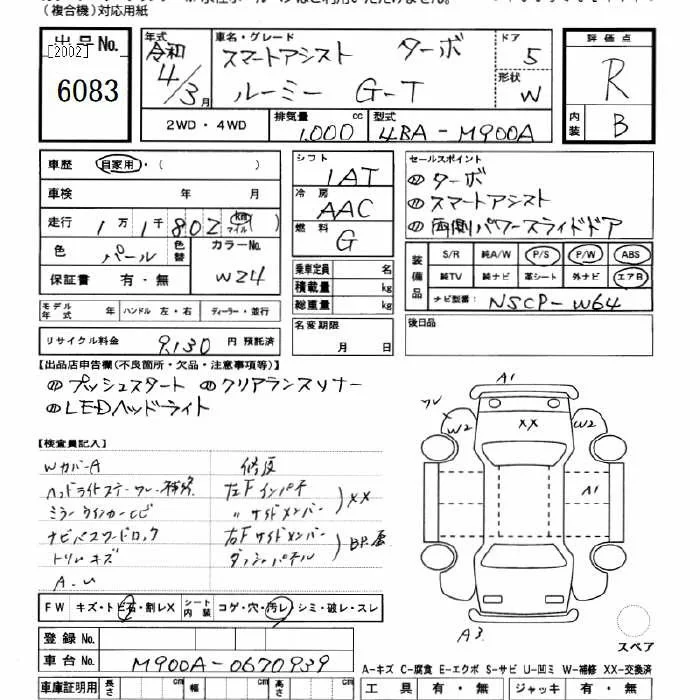 (複合機)対応用紙
出品No.
[2002]
6083
年式
令和
4/3月
車名・グレード
スマートアシスト ターボ
ルーミー G-T
ドア
5
形状
W
評価点
R
内装
B
2WD・4WD
排気量
1,000cc
型式
4BA-M900A
車歴 自家用・( )
車検 年 月
走行 1万1千802km マイル( )
色 パール
色替
カラーNo.
W24
保証書 有・無
シフト
1AT
冷房
AAC
燃料
G
乗車定員 名
積載量 kg
総重量 kg
セールスポイント
①ターボ
②スマートアシスト
③両側パワースライドドア
装備品
S/R 純A/W P/S P/W ABS
純TV 純ナビ 革シート 外ナビ エアB
ナビ型番: NSCP-W64
モデル年式 年 ハンドル 左・右 ディーラー・並行
名変期限
月 日
後日品
リサイクル料金 9,130 円 預託済
【出品店申告欄(不良箇所・欠品・注意事項等)】
プッシュスタート クリアランスソナー
LEDヘッドライト
【検査員記入】
WカバーA 修復
左Fインパネ
〃サイドメンバー XX
ナビパスワードロック 右Fサイドメンバー
トリムキズ ダッシュパネル
A1
XX
W2
W2
A1
A3
FW キズ・トビ石・割レX シート内装 コゲ・穴・汚レ・シミ・破レ・スレ
スペア
登録No.
車台No. M900A-0670939
A-キズ C-腐食 E-エクボ S-サビ U-凹ミ W-補修 XX-交換済
車庫証明用 長さ cm 幅 cm 高さ cm
工具 有・無 ジャッキ 有・無